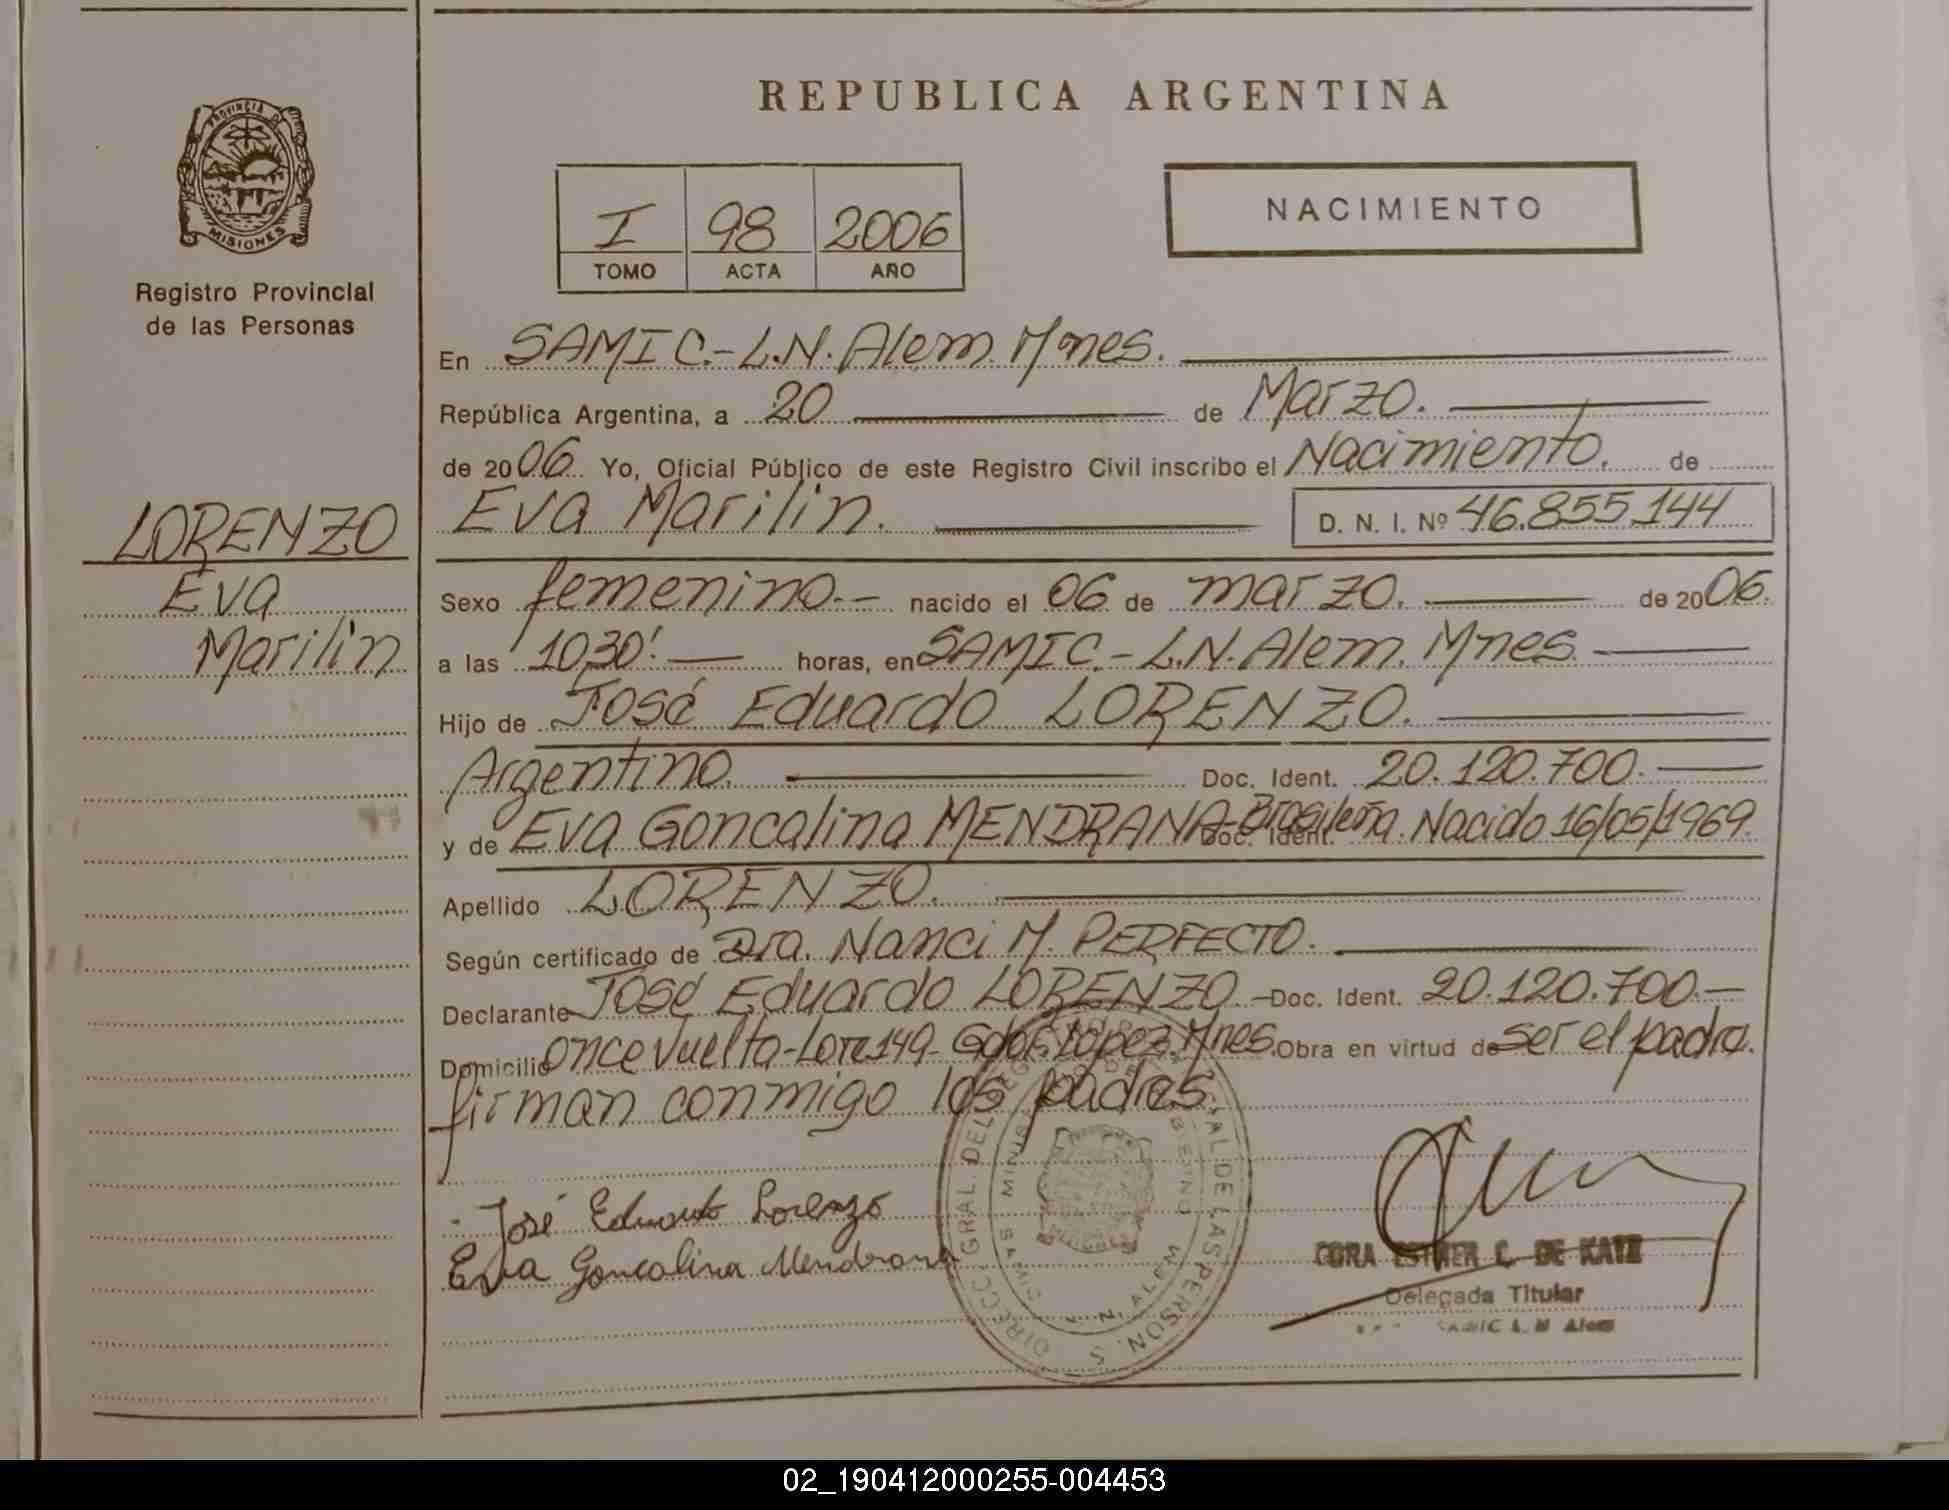 REPUBLICA ARGENTINA
PROVINCIA DE
MISIONES
Registro Provincial
de las Personas
I 98 2006
TOMO ACTA AÑO
NACIMIENTO
En SAMIC.-L.N. Alem. Mnes.
República Argentina, a 20 de Marzo.
de 2006 Yo, Oficial Público de este Registro Civil inscribo el Nacimiento. de
Eva Marilin. D. N. I. Nº 46.855.144
LORENZO
Eva
Marilin
Sexo femenino.- nacido el 06 de marzo. de 2006.
a las 10,30'. horas, en SAMIC.-L.N. Alem. Mnes.
Hijo de José Eduardo LORENZO.
Argentino. Doc. Ident. 20.120.700.
y de Eva Goncalina MENDRANA Brasileña. Nacido 16/05/1969.
Doc. Ident.
Apellido LORENZO.
Según certificado de Dra. Nanci M. PERFECTO.
Declarante José Eduardo LORENZO.- Doc. Ident. 20.120.700.-
Domicilio once Vuelta-Lote 149- Gdor. López. Mnes. Obra en virtud de ser el padre.
firman conmigo los padres.
José Eduardo Lorenzo
Eva Goncalina Mendrana
CORA ESTHER C. DE KATZ
Delegada Titular
SAMIC L. N Alem
02_190412000255-004453